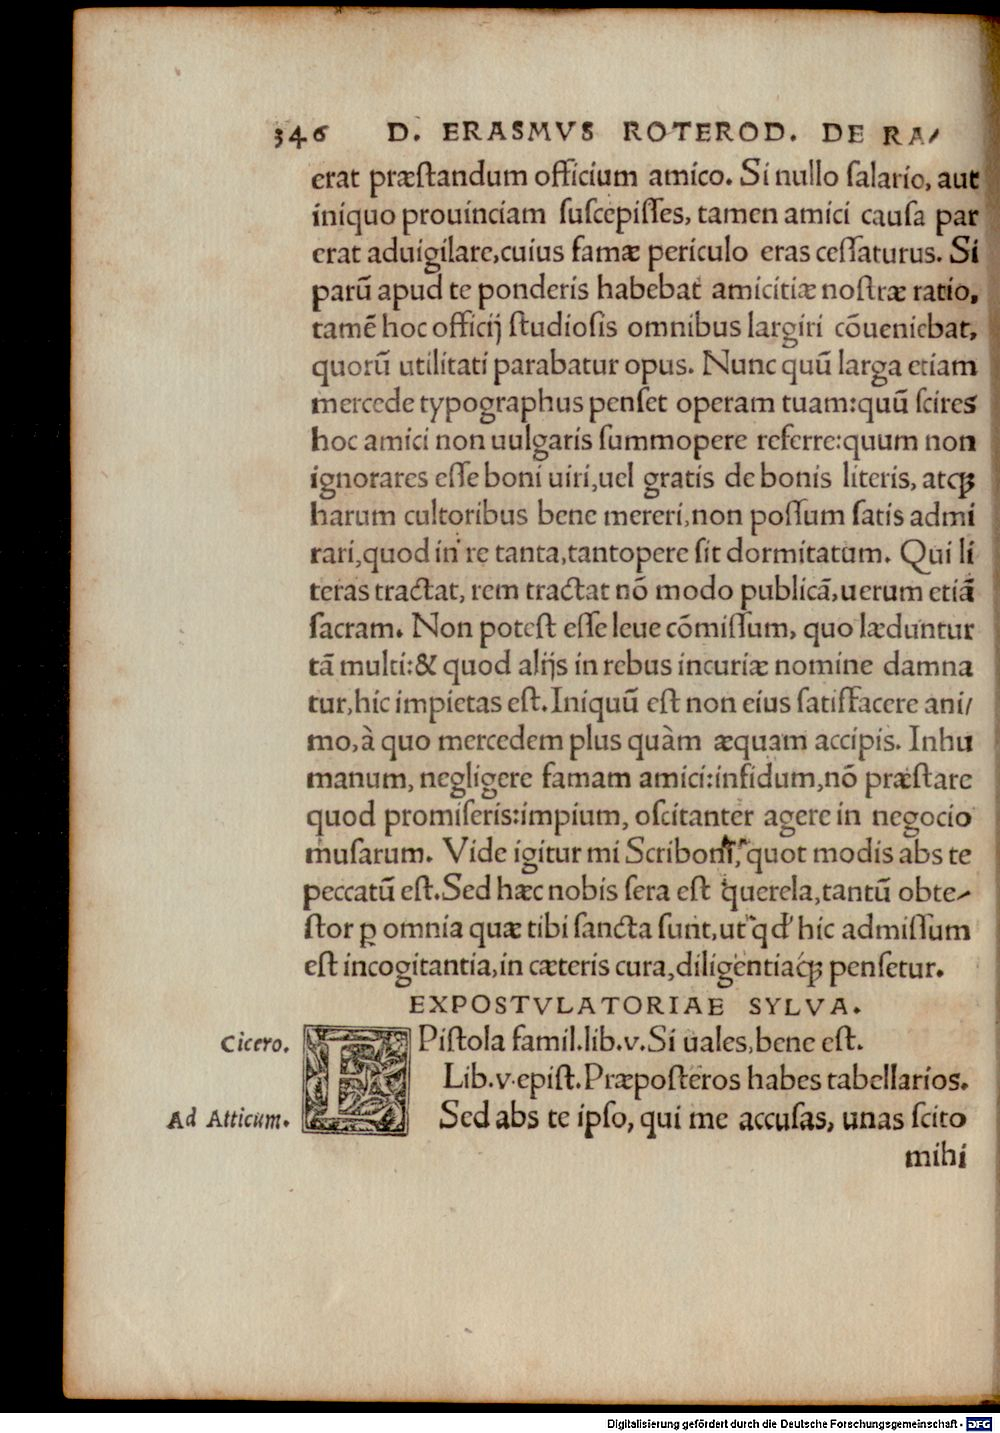 346 D. ERASMVS ROTEROD. DE RA/
erat præſtandum officium amico. Si nullo ſalario, aut
iniquo prouinciam ſuſcepiſſes, tamen amici cauſa par
erat aduigilare,cuius famæ periculo eras ceſſaturus. Si
parũ apud te ponderis habebat amicitiæ noſtræ ratio,
tamẽ hoc officij ſtudioſis omnibus largiri cõueniebat,
quorũ utilitati parabatur opus. Nunc quũ larga etiam
mercede typographus penſet operam tuam:quũ ſcires
hoc amici non uulgaris ſummopere referre:quum non
ignorares eſſe boni uiri,uel gratis de bonis literis, atqꝫ
harum cultoribus bene mereri,non poſſum ſatis admi
rari,quod in re tanta,tantopere ſit dormitatum. Qui li
teras tractat, rem tractat nõ modo publicã,uerum etiã
ſacram. Non poteſt eſſe leue cõmiſſum, quo læduntur
tã multi:& quod alijs in rebus incuriæ nomine damna
tur,hic impietas eſt.Iniquũ eſt non eius ſatiſfacere ani/
mo,à quo mercedem plus quàm æquam accipis. Inhu
manum, negligere famam amici:infidum,nõ præſtare
quod promiſeris:impium, oſcitanter agere in negocio
muſarum. Vide igitur mi Scriboni, quot modis abs te
peccatũ eſt.Sed hæc nobis ſera eſt querela,tantũ obte/
ſtor ꝑ omnia quæ tibi ſancta ſunt,ut qd' hic admiſſum
eſt incogitantia,in cæteris cura,diligentiaqꝫ penſetur.
EXPOSTVLATORIAE SYLVA.
Cicero. EPiſtola famil.lib.v.Si uales,bene eſt.
Lib.v.epiſt.Præpoſteros habes tabellarios.
Ad Atticum. Sed abs te ipſo, qui me accuſas, unas ſcito
mihi
Digitalisierung gefördert durch die Deutsche Forschungsgemeinschaft - DFG